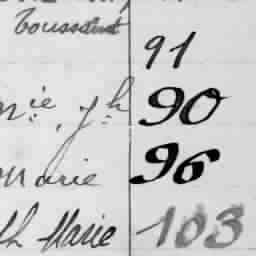 Toussaint 91
nie, Jh 90
Marie 96
th Marie 103